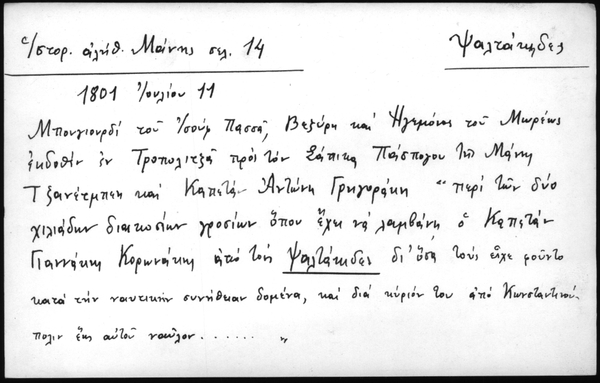 Ἱστορ. ἀλήθ. Μάνης σελ. 14
Ψαλτάκηδες
1801 Ἰουλίου 11
Μπουγιουρδί τοῦ Ἰσούφ Πασσᾶ, Βεζύρη καί Ἡγεμόνος τοῦ Μωρέως
ἐκδοθέν ἐν Τροπολιτζᾷ πρός τόν Σάπικα Πάσπογου τῆς Μάνης
Τζανέτμπεη καί Καπετάν Ἀντώνη Γρηγοράκη " περί τῶν δύο
χιλιάδων διακοσίων γροσίων ὅπου ἔχει νά λαμβάνη ὁ Καπετάν
Γιαννάκης Κορωνάκης ἀπό τούς Ψαλτάκηδες δι' ὅσα τούς εἶχε
κατά τήν ναυτικήν συνήθειαν δομένα, καί διά κύριόν του ἀπό Κωνσταντινού-
πολιν ἕως αὐτοῦ ναῦλον....... "